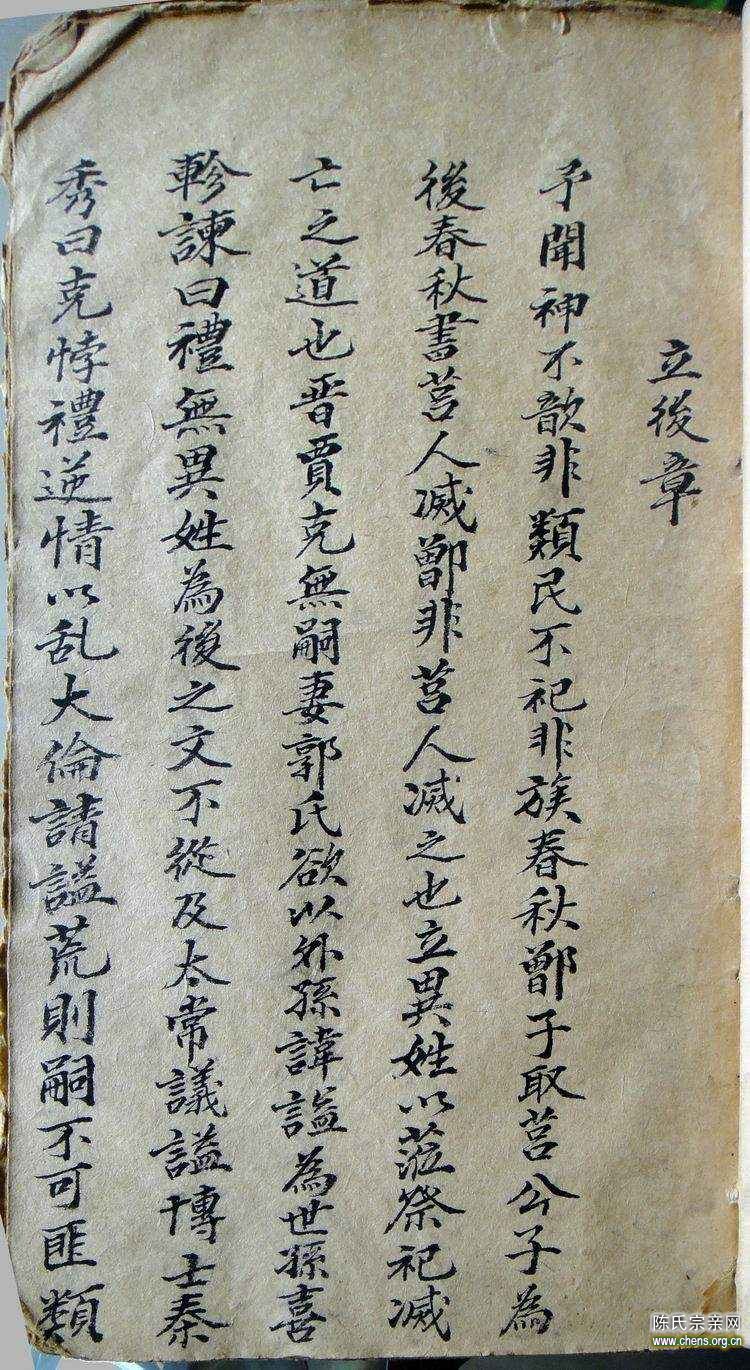 立後章
予聞神不歆非類民不祀非族春秋鄫子取莒公子為
後春秋書莒人滅鄫非莒人滅之也立異姓以蒞祭祀滅
亡之道也晋賈克無嗣妻郭氏欲以外孫諱謚為世孫喜
軫諫曰禮無異姓為後之文不從及太常議謚博士秦
秀曰克悖禮逆情以乱大倫請謚荒則嗣不可匪類
陈氏宗亲网
www.chens.org.cn